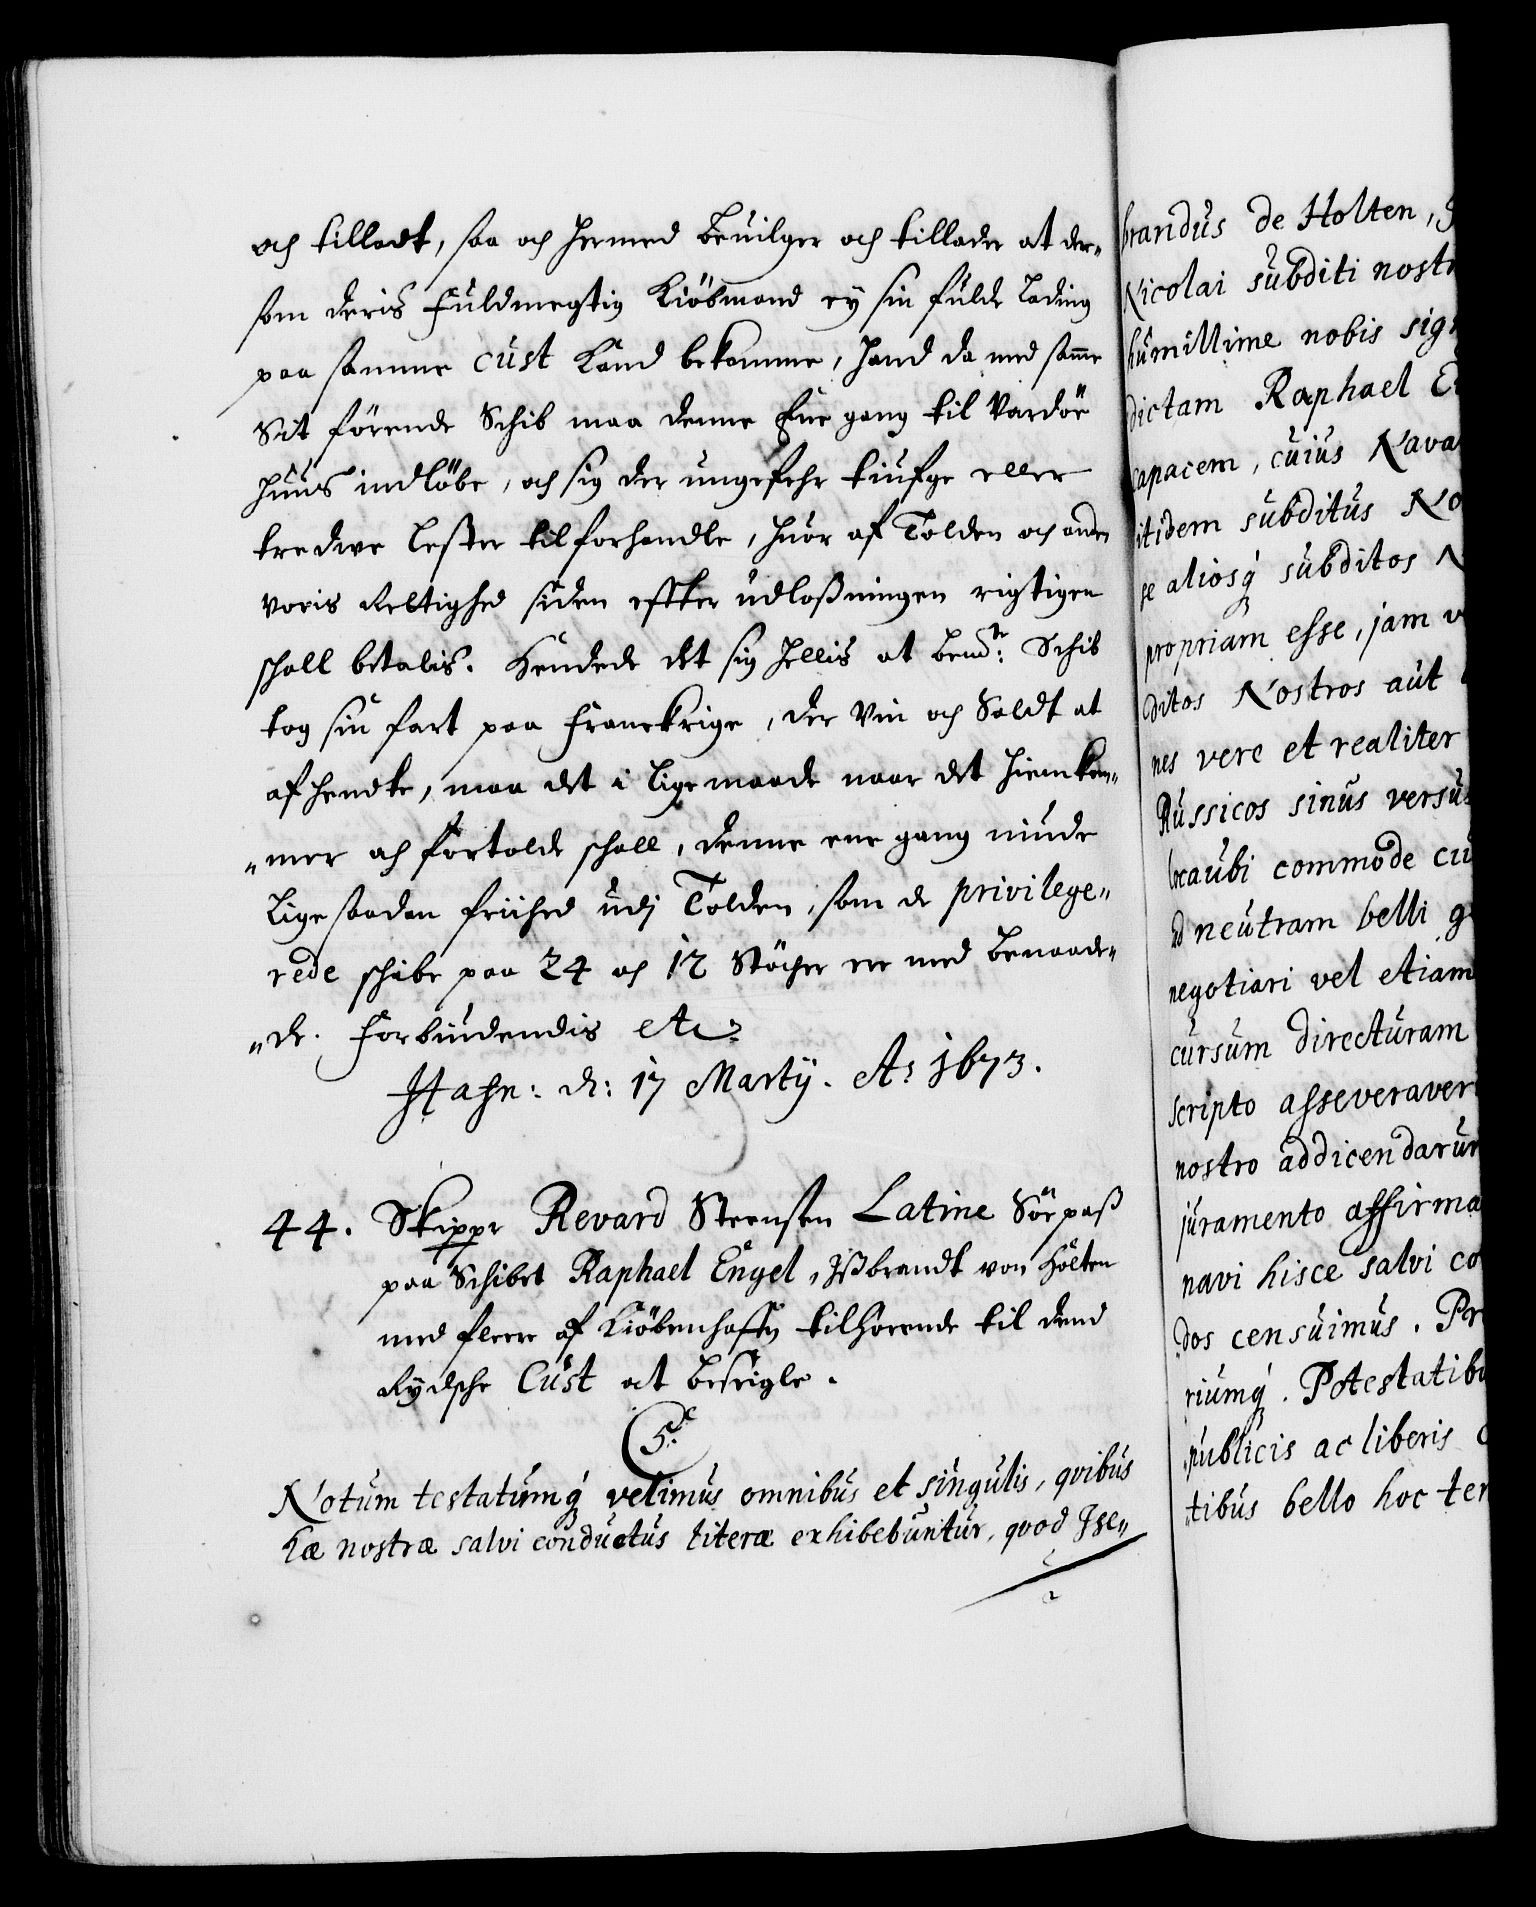 och tilladt, saa och hermed beuilger och tillader at der„
som deris fuldmegtig Kiöbmand ey sin fulde lading
paa samme cust kand bekomme, hand da med samme
Sit förende Schib maa denne Ene gang til Vardöe
huus indlöbe, och sig der ungefehr tiufge eller
tredive lester tilforhandle, huor af Tolden och anden
voris Rettighed siden effter udlossningen rigtigen
schall betalis. Hendede det sig hellis at bemdte: Schib
tog sin fart paa Franckrige, der Vin och Saldt at
afhendte, maa det i lige maade naar det hiemkom„
„mer och fortolde schall, denne ene gang niude
lige saadan friihed udj Tolden, som de privilege„
rede schibe paa 24 och 12 Stöcher ere med benaade„
„de. Forbiudendis etc:
Hafn: d: 17 Martij. Ao 1673.
44. Skipper Revard Steensen Latine Söepass
paa Schibet Raphael Engel, Issbrandt von Holten
med fleere af Kiöbenhaffn tilhörende til dend
Rydsche Cust at beseigle.
C 5.
Notum testatumq́ velimus omnibus et singulis, qvibus
hæ nostræ salvi conductus literæ exhibebuntur, qvod Jse„
brandus de Holten,
Nicolai subditi nostr
humillime nobis sig
dictam Raphael E
capacem, cuius Nava
itidem subditus No
se aliosq́ subditos N
propriam esse, jam v
ditos Nostros aut
nes vere et realiter
Russicos sinus versu
locaubi commode cu
ad neutram belli g
negotiari vel etiam
cursum directuram
scripto asseveraver
nostro addicendarum
juramento affirma
navi hisce salvi co
dos censuimus. Pr
riumq́. Potestatibu
publicis ac liberis
tibus bello hoc ter